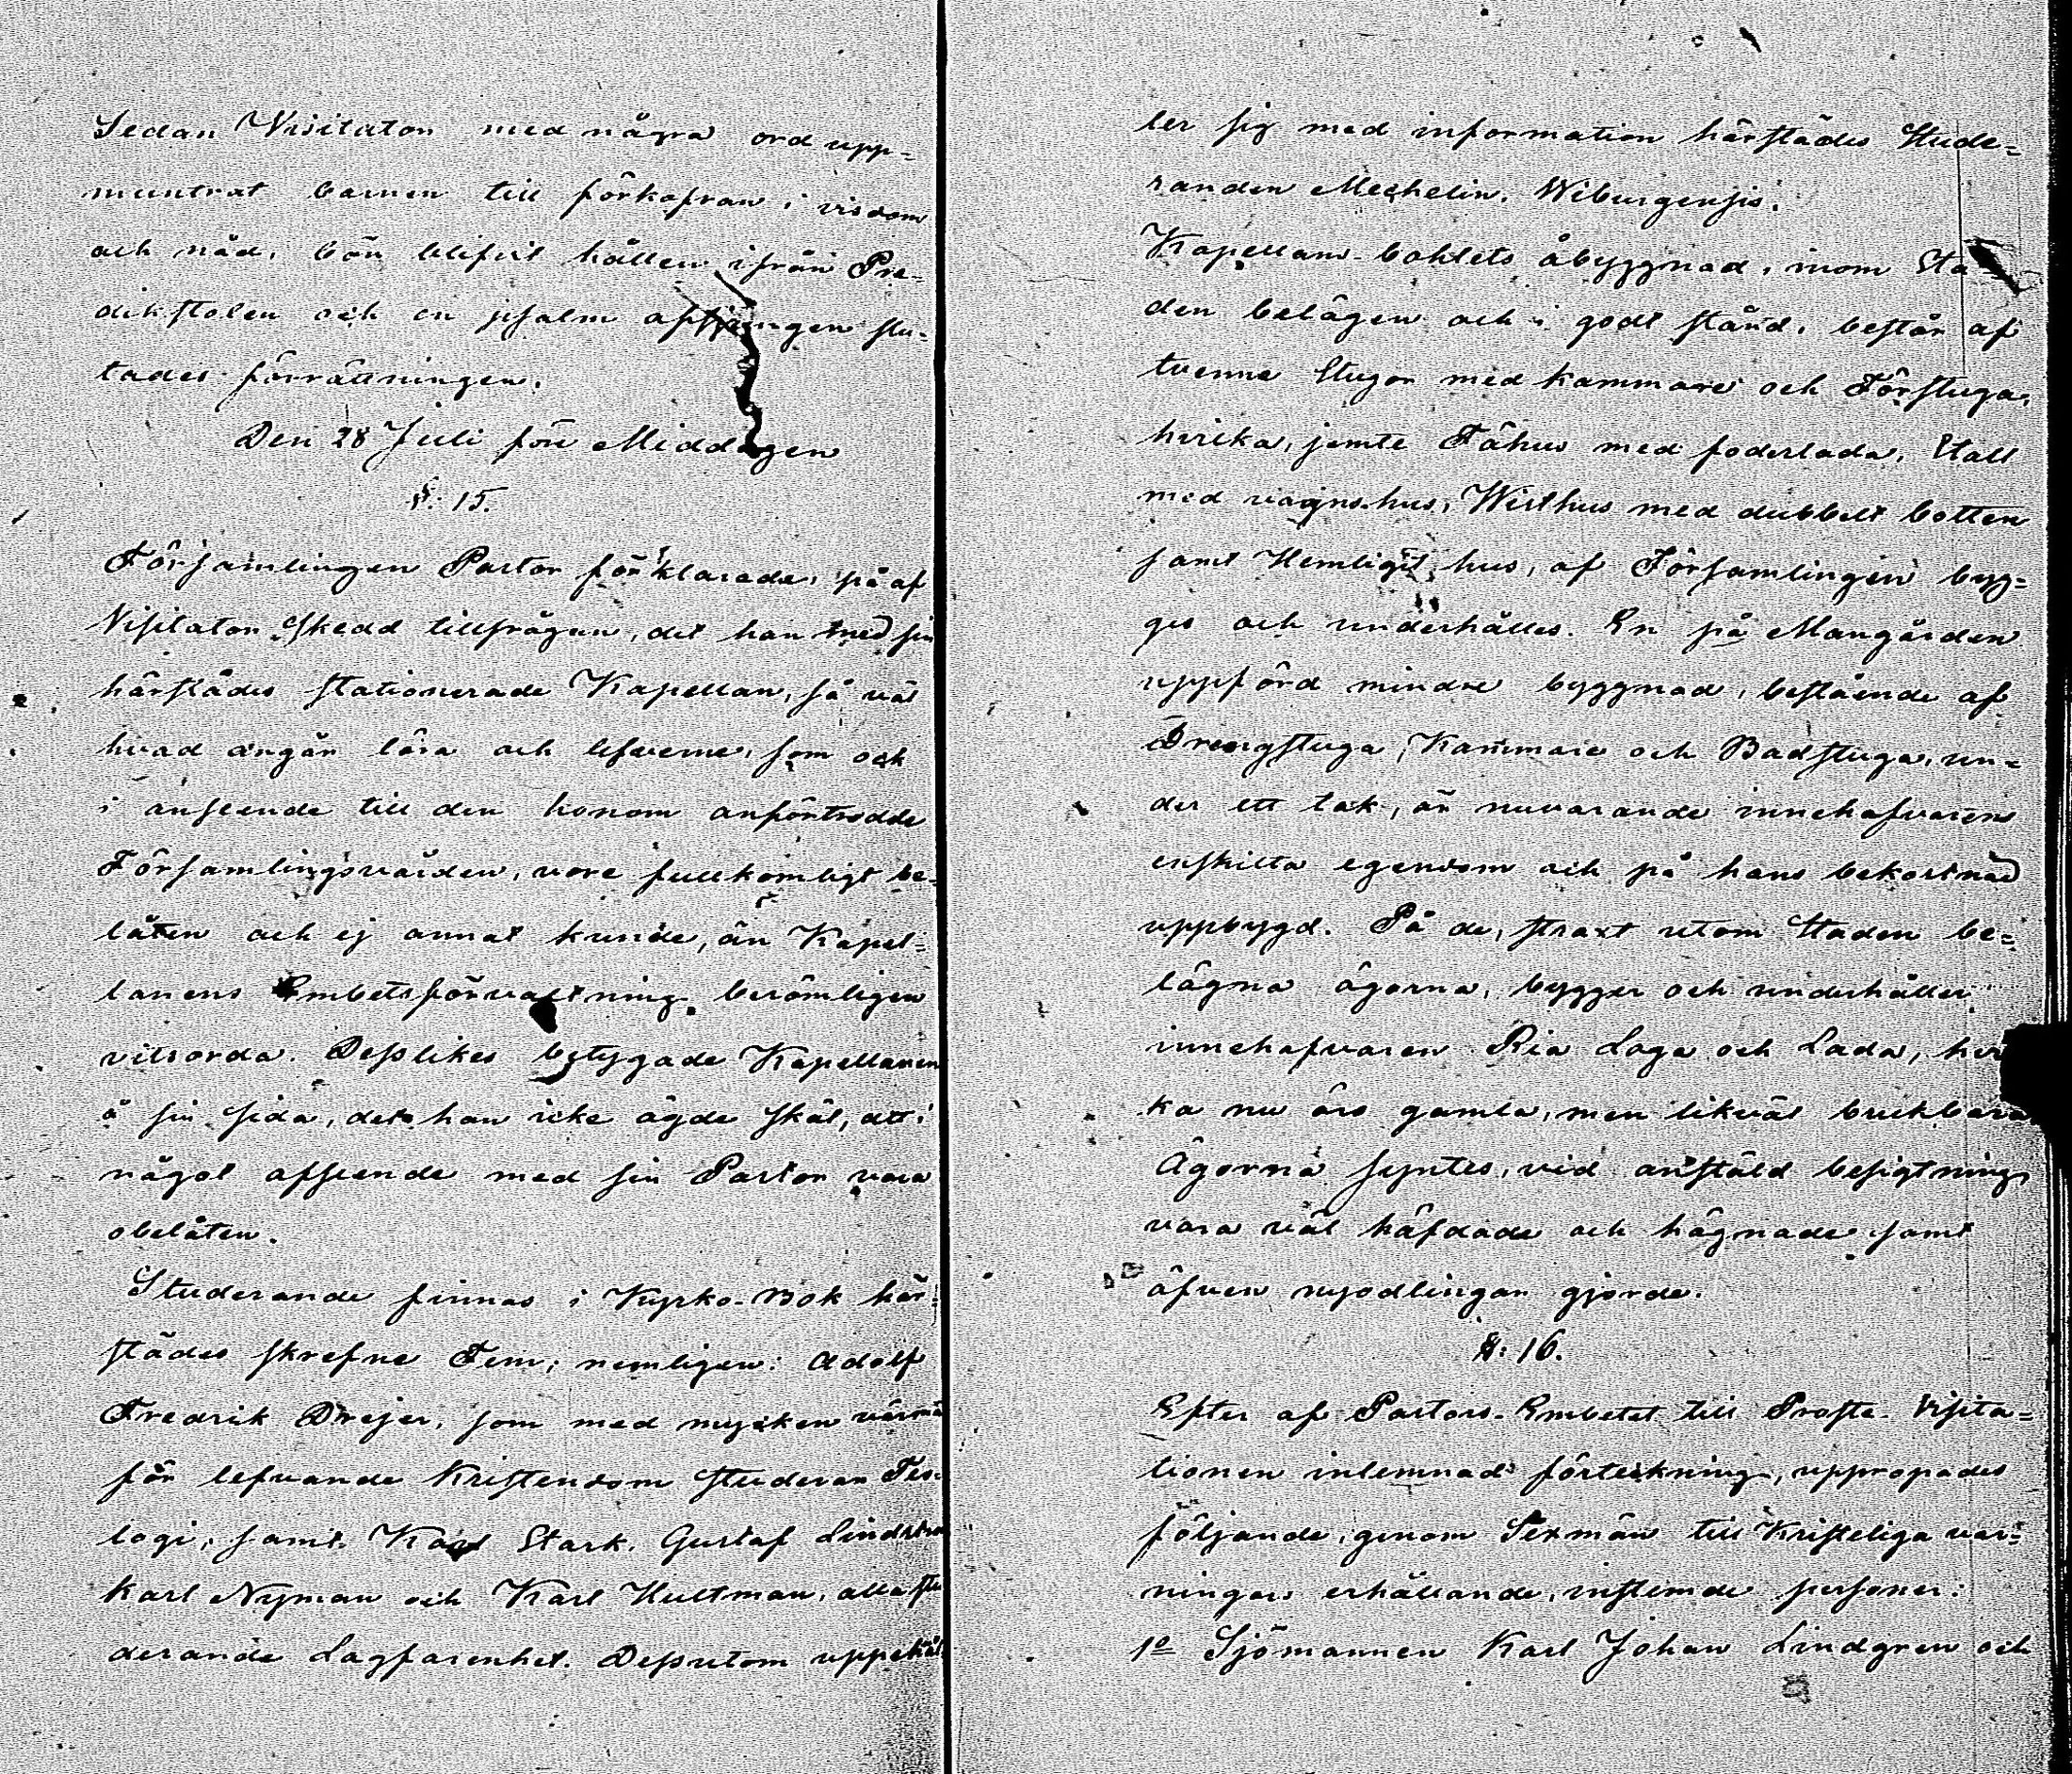 Sedan Visitator med några ord upp=
muntrat barnen till förkofran i visdom
och nåd, bön blifvit hållen ifrån Pre=
dikstolen och en psalm afsjungen slu=
tades förrättningen.
Den 28 Juli före Middagen
§: 15.
Församlingen Pastor förklarade, på af
Visitator skedd tillfrågan, det han med sin
härstädes stationerade Kapellan, så väl
hvad angår lära och lefverne, som ock
i anseende till den honom anförtrodde
Församlingsvården, vore fullkomligt be=
låten och ej annat kunde, än Kapel=
lanens Embetsförvaltning berömligen
vitsorda. Desslikes betygade Kapellanen
å sin sida, det han icke ägde skäl, att i
något afseende med sin Pastor vara
obelåten.
Studerande finnas i Kyrko-Bok här=
städes skrefne Fem; nemligen: Adolf
Fredrik Drejer, som med mycken värma
för lefvande Kristendom studerar Teo=
logi, samt Karl Stark, Gustaf Lindström
Karl Nyman och Karl Hultman, alla stu
derande Lagfarenhet. Dessutom uppehål
ler sig med information härstädes Stude=
randen Mechelin. Wiburgensis.
Kapellans-bohlets åbyggnad, inom Sta=
den belägen och i godt stånd, består af
tvenne Stugor med kammare och Förstuga,
hvilka, jemte Fähus med foderlada, Stall
med vagnshus, Wisthus med dubbelt botten
samt Hemligit hus, af Församlingen byg=
ges och underhålles. En på Mangården
uppförd mindre byggnad, bestående af
Drengstuga, Kammare och Badstuga, un=
der ett tak, är nuvarande innehafvaren
enskilta egendom och på hans bekostnad
uppbygd. På de, straxt utom Staden be=
lägna ägorna, bygger och underhåller
innehafvaren Ria Loge och Lada, hvil
ka nu äro gamla, men likväl brukbara
Ägorna syntes, vid anstäld besigtning,
vara väl häfdade och hägnade samt
äfven nyodlingar gjorde.
§: 16.
Efter af Pastors-Embetet till Proste-Visita=
tionen inlemnad förtekning, uppropades
följande, genom Sexmän till Kristeliga var=
ningars erhållande, instemde personer:
1º Sjömannen Karl Johan Lindgren och